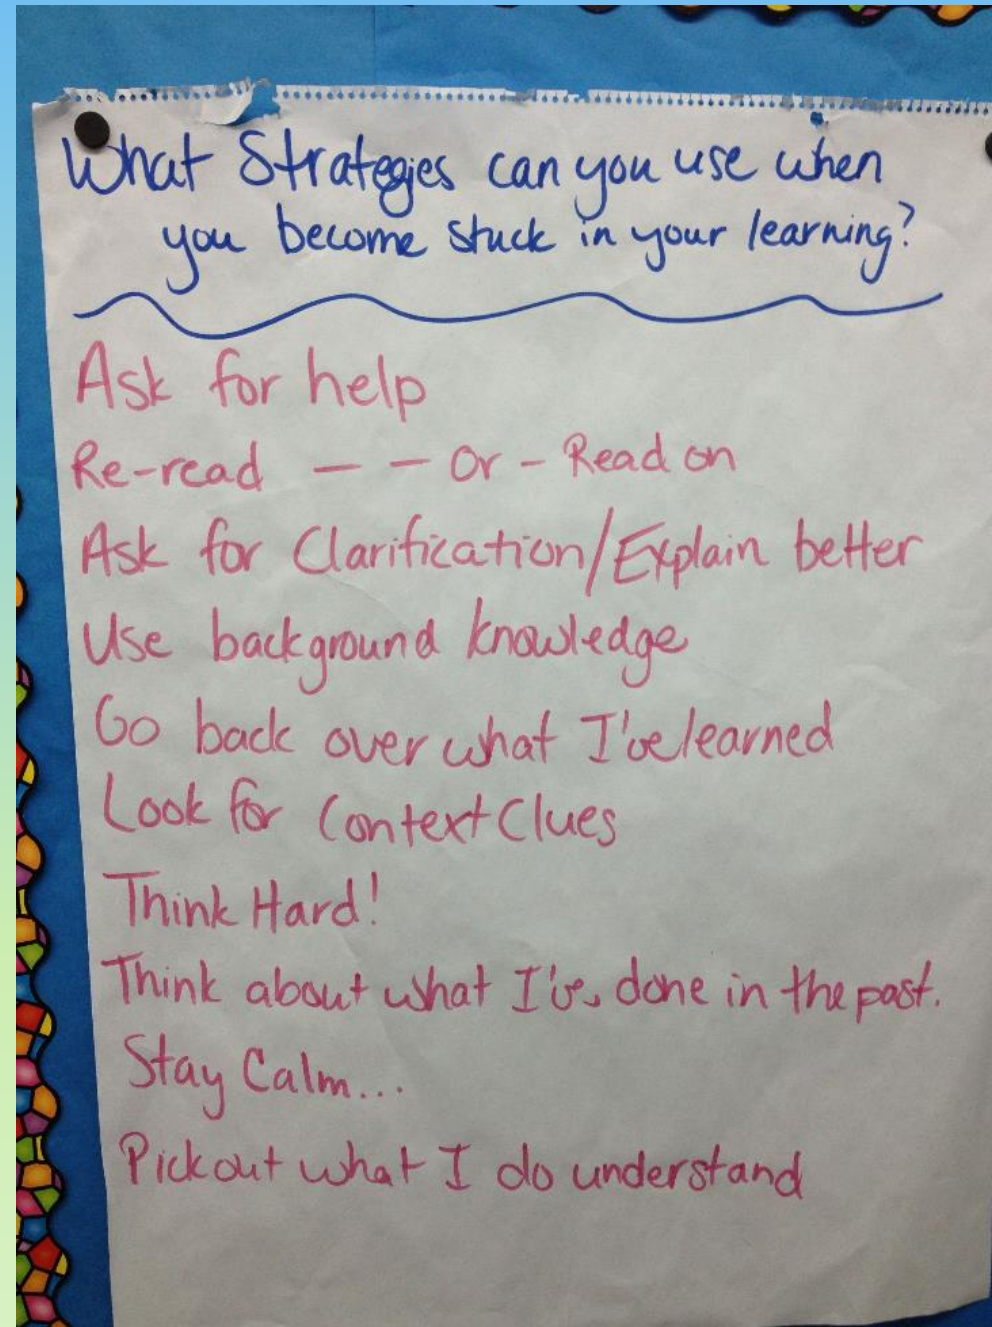 What Strategies can you use when
you become stuck in your learning?
Ask for help
Re-read — — Or - Read on
Ask for Clarification/Explain better
Use background knowledge
Go back over what I've learned
Look for Context Clues
Think Hard!
Think about what I've done in the past.
Stay Calm...
Pick out what I do understand